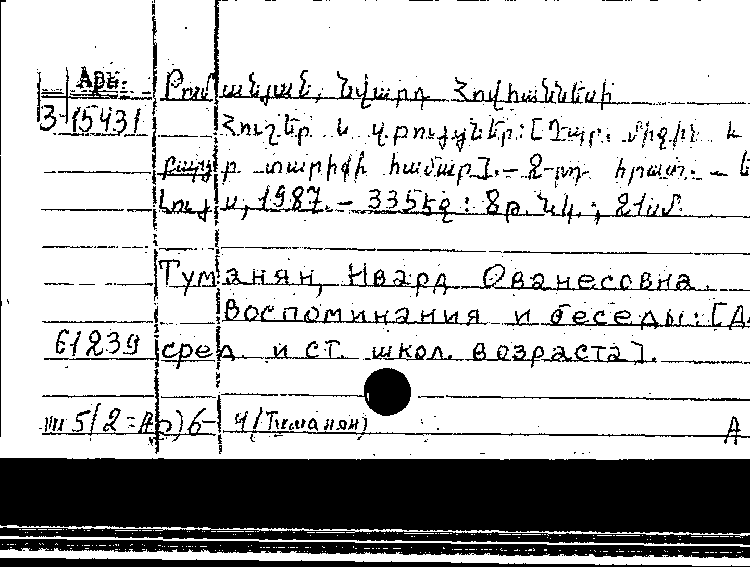 Арм.
Թումանյան, Նվարդ Հովհաննեսի
3-15431
Հուշեր և զրույցներ: [Դպր. միջին և
բարձր տարիքի համար].- 2-րդ հրատ. - Ե
Լույս, 1987.- 335 էջ: 8 թ. նկ.; 21 սմ.
Туманян, Нвард Ованесовна.
Воспоминания и беседы: [Д
61239 сред. и ст. школ. возраста].
Ш5(2=Ар)6-4(Туманян) А